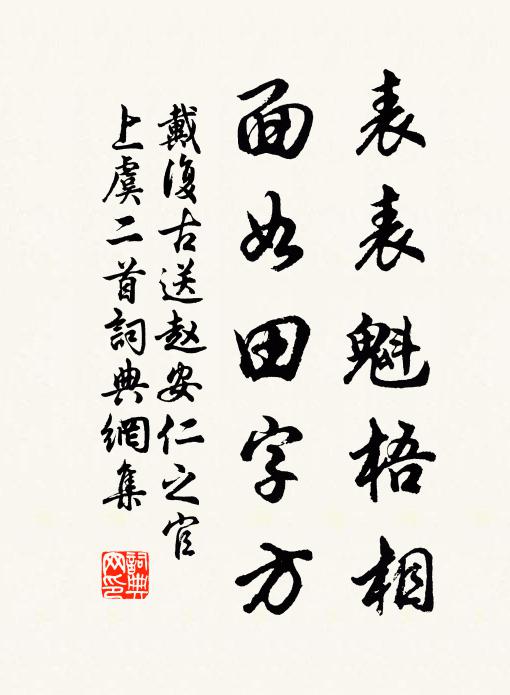 表表魁梧相
面如田字方
戴復古送赵安仁之官
上虞二首詞典網集
詞典网印